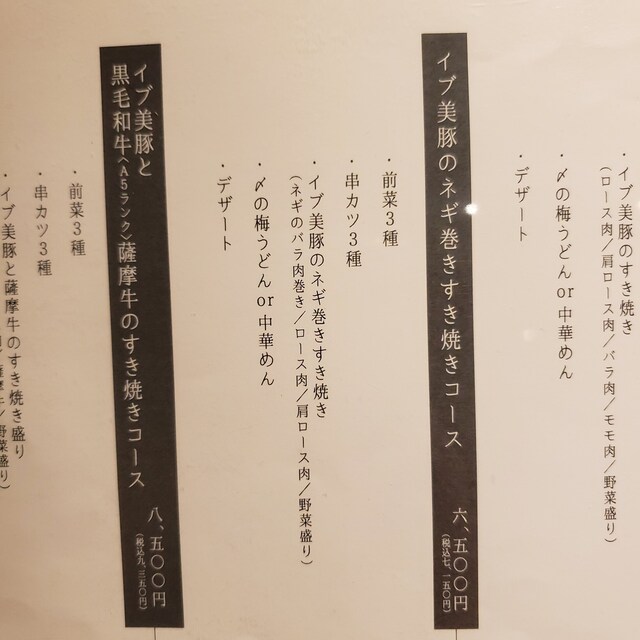 ・イブ美豚のすき焼き
(ロース肉／肩ロース肉／バラ肉／モモ肉／野菜盛り)
・〆の梅うどんor中華めん
・デザート
イブ美豚のネギ巻きすき焼きコース 六、五〇〇円
(税込七、一五〇円)
・前菜3種
・串カツ3種
・イブ美豚のネギ巻きすき焼き
(ネギのバラ肉巻き／ロース肉／肩ロース肉／野菜盛り)
・〆の梅うどんor中華めん
・デザート
イブ美豚と
黒毛和牛〈A5ランク〉薩摩牛のすき焼きコース 八、五〇〇円
(税込九、三五〇円)
・前菜3種
・串カツ3種
・イブ美豚と薩摩牛のすき焼き盛り
野菜盛り)